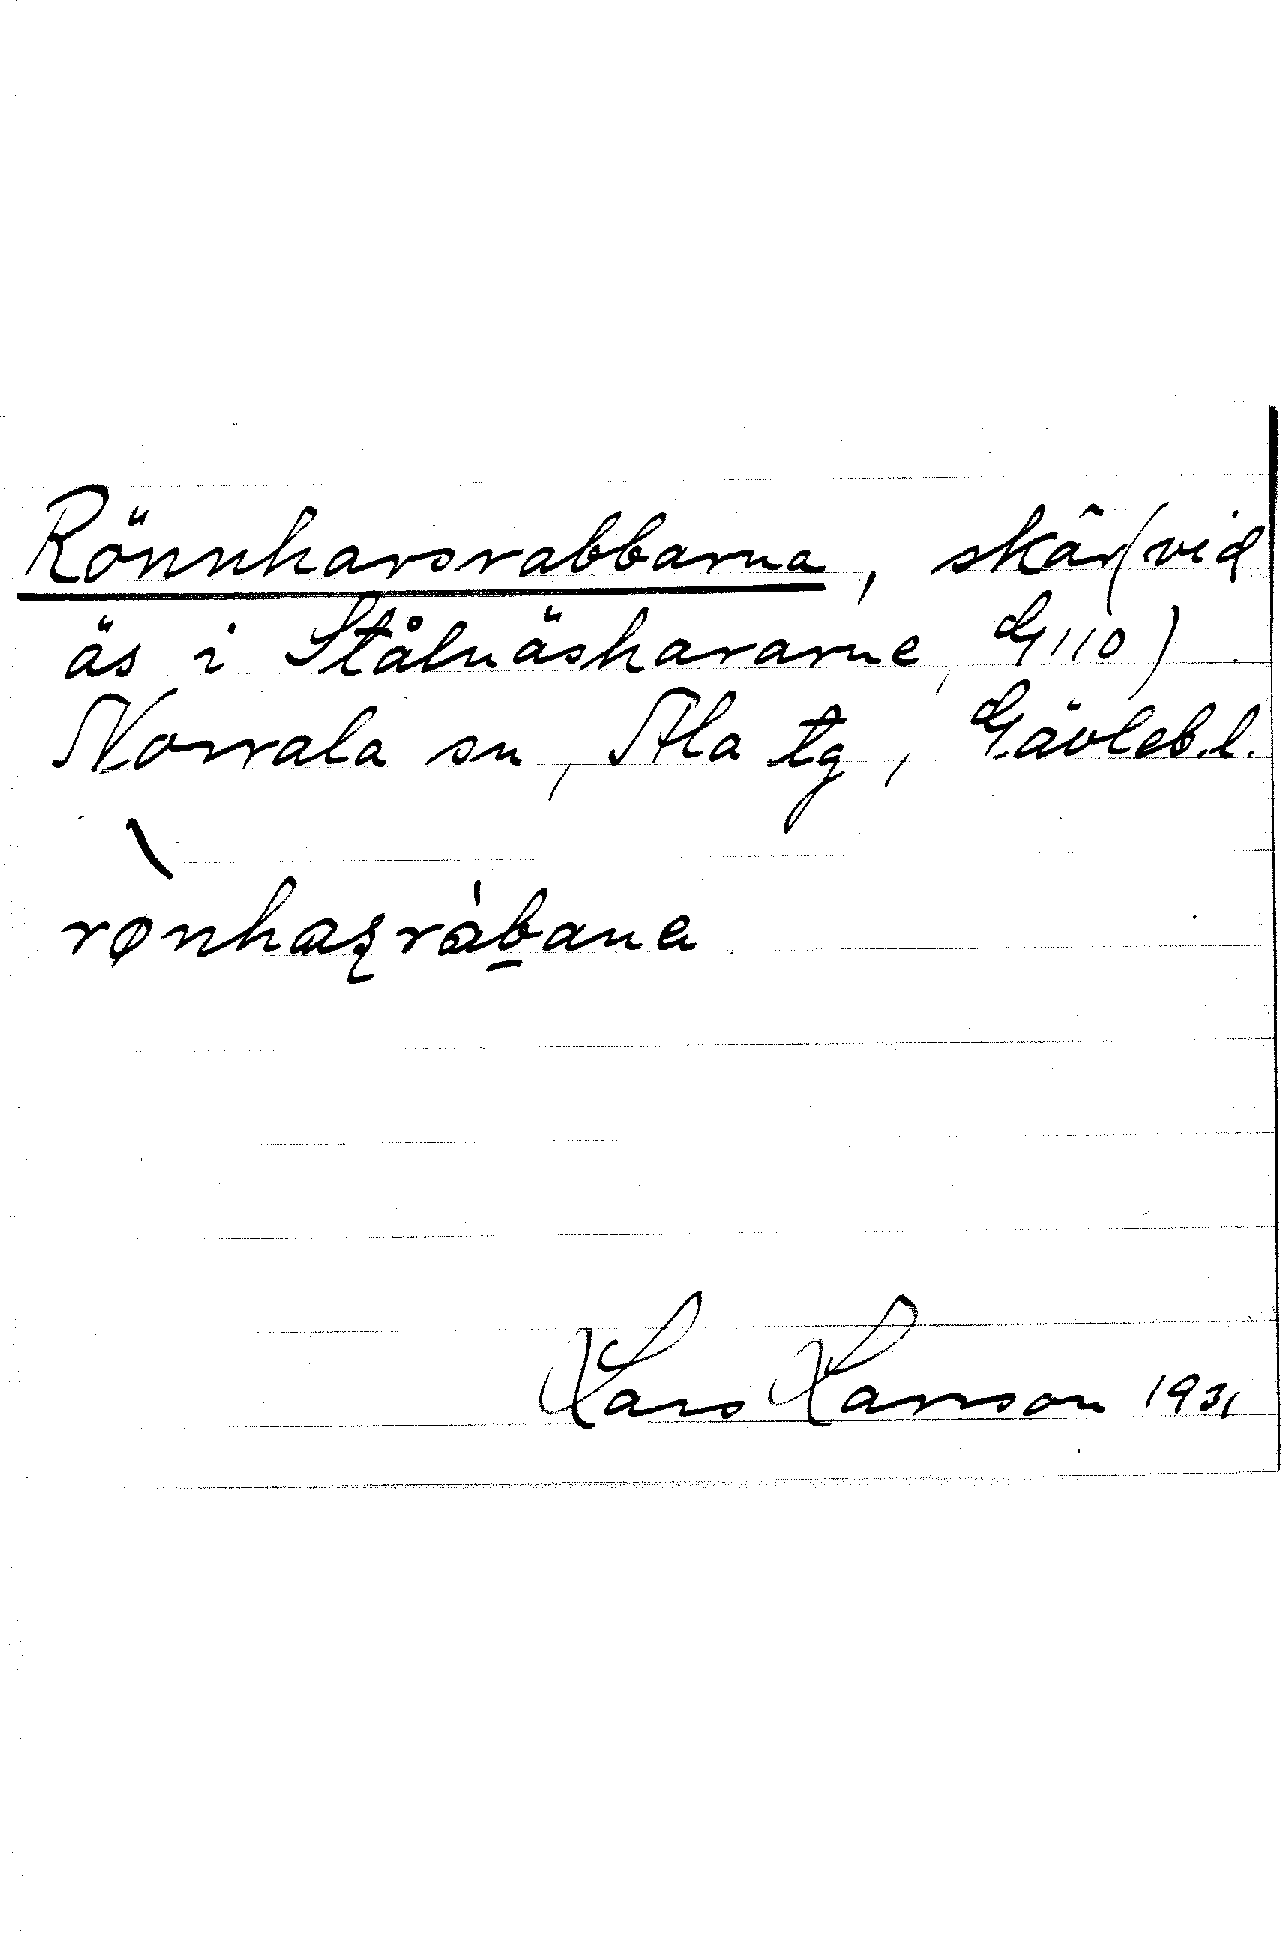 Rönnharsrabbarna, skär (vid
äs i Stålnäshararne, G110)
Norrala sn, Ala tg, Gävleb.l.
rønhaʂrábana
Lars Larsson 1931